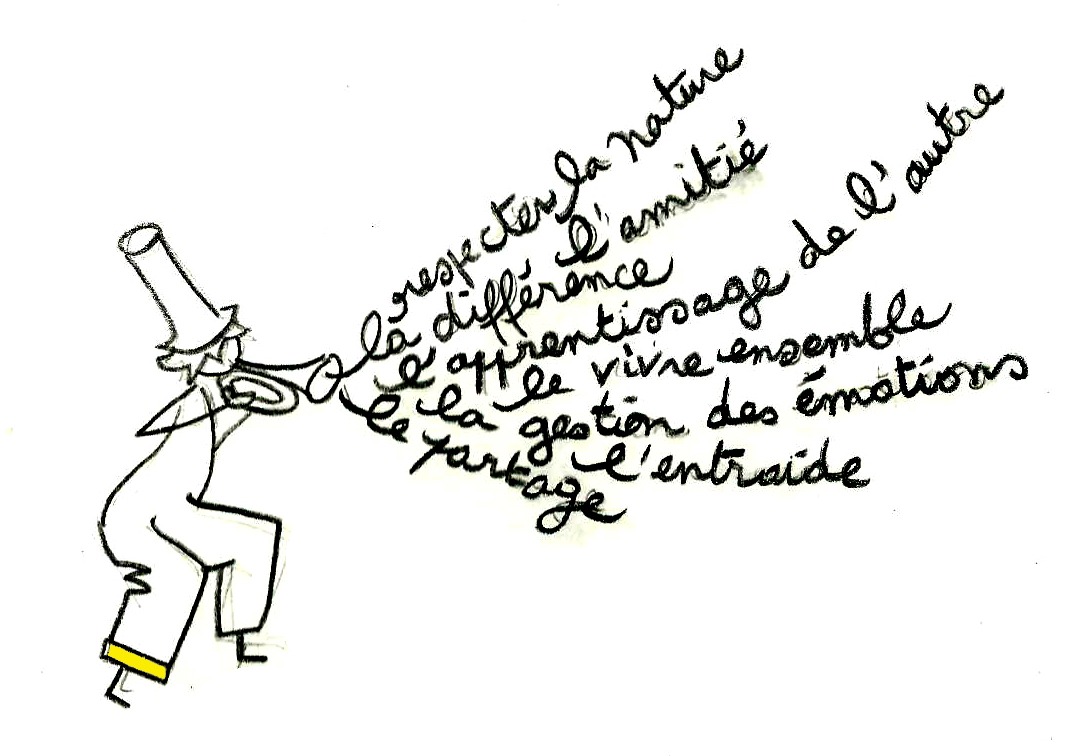 respecter la nature
l'amitié
la différence
l'apprentissage de l'autre
le vivre ensemble
la gestion des émotions
l'entraide
le partage